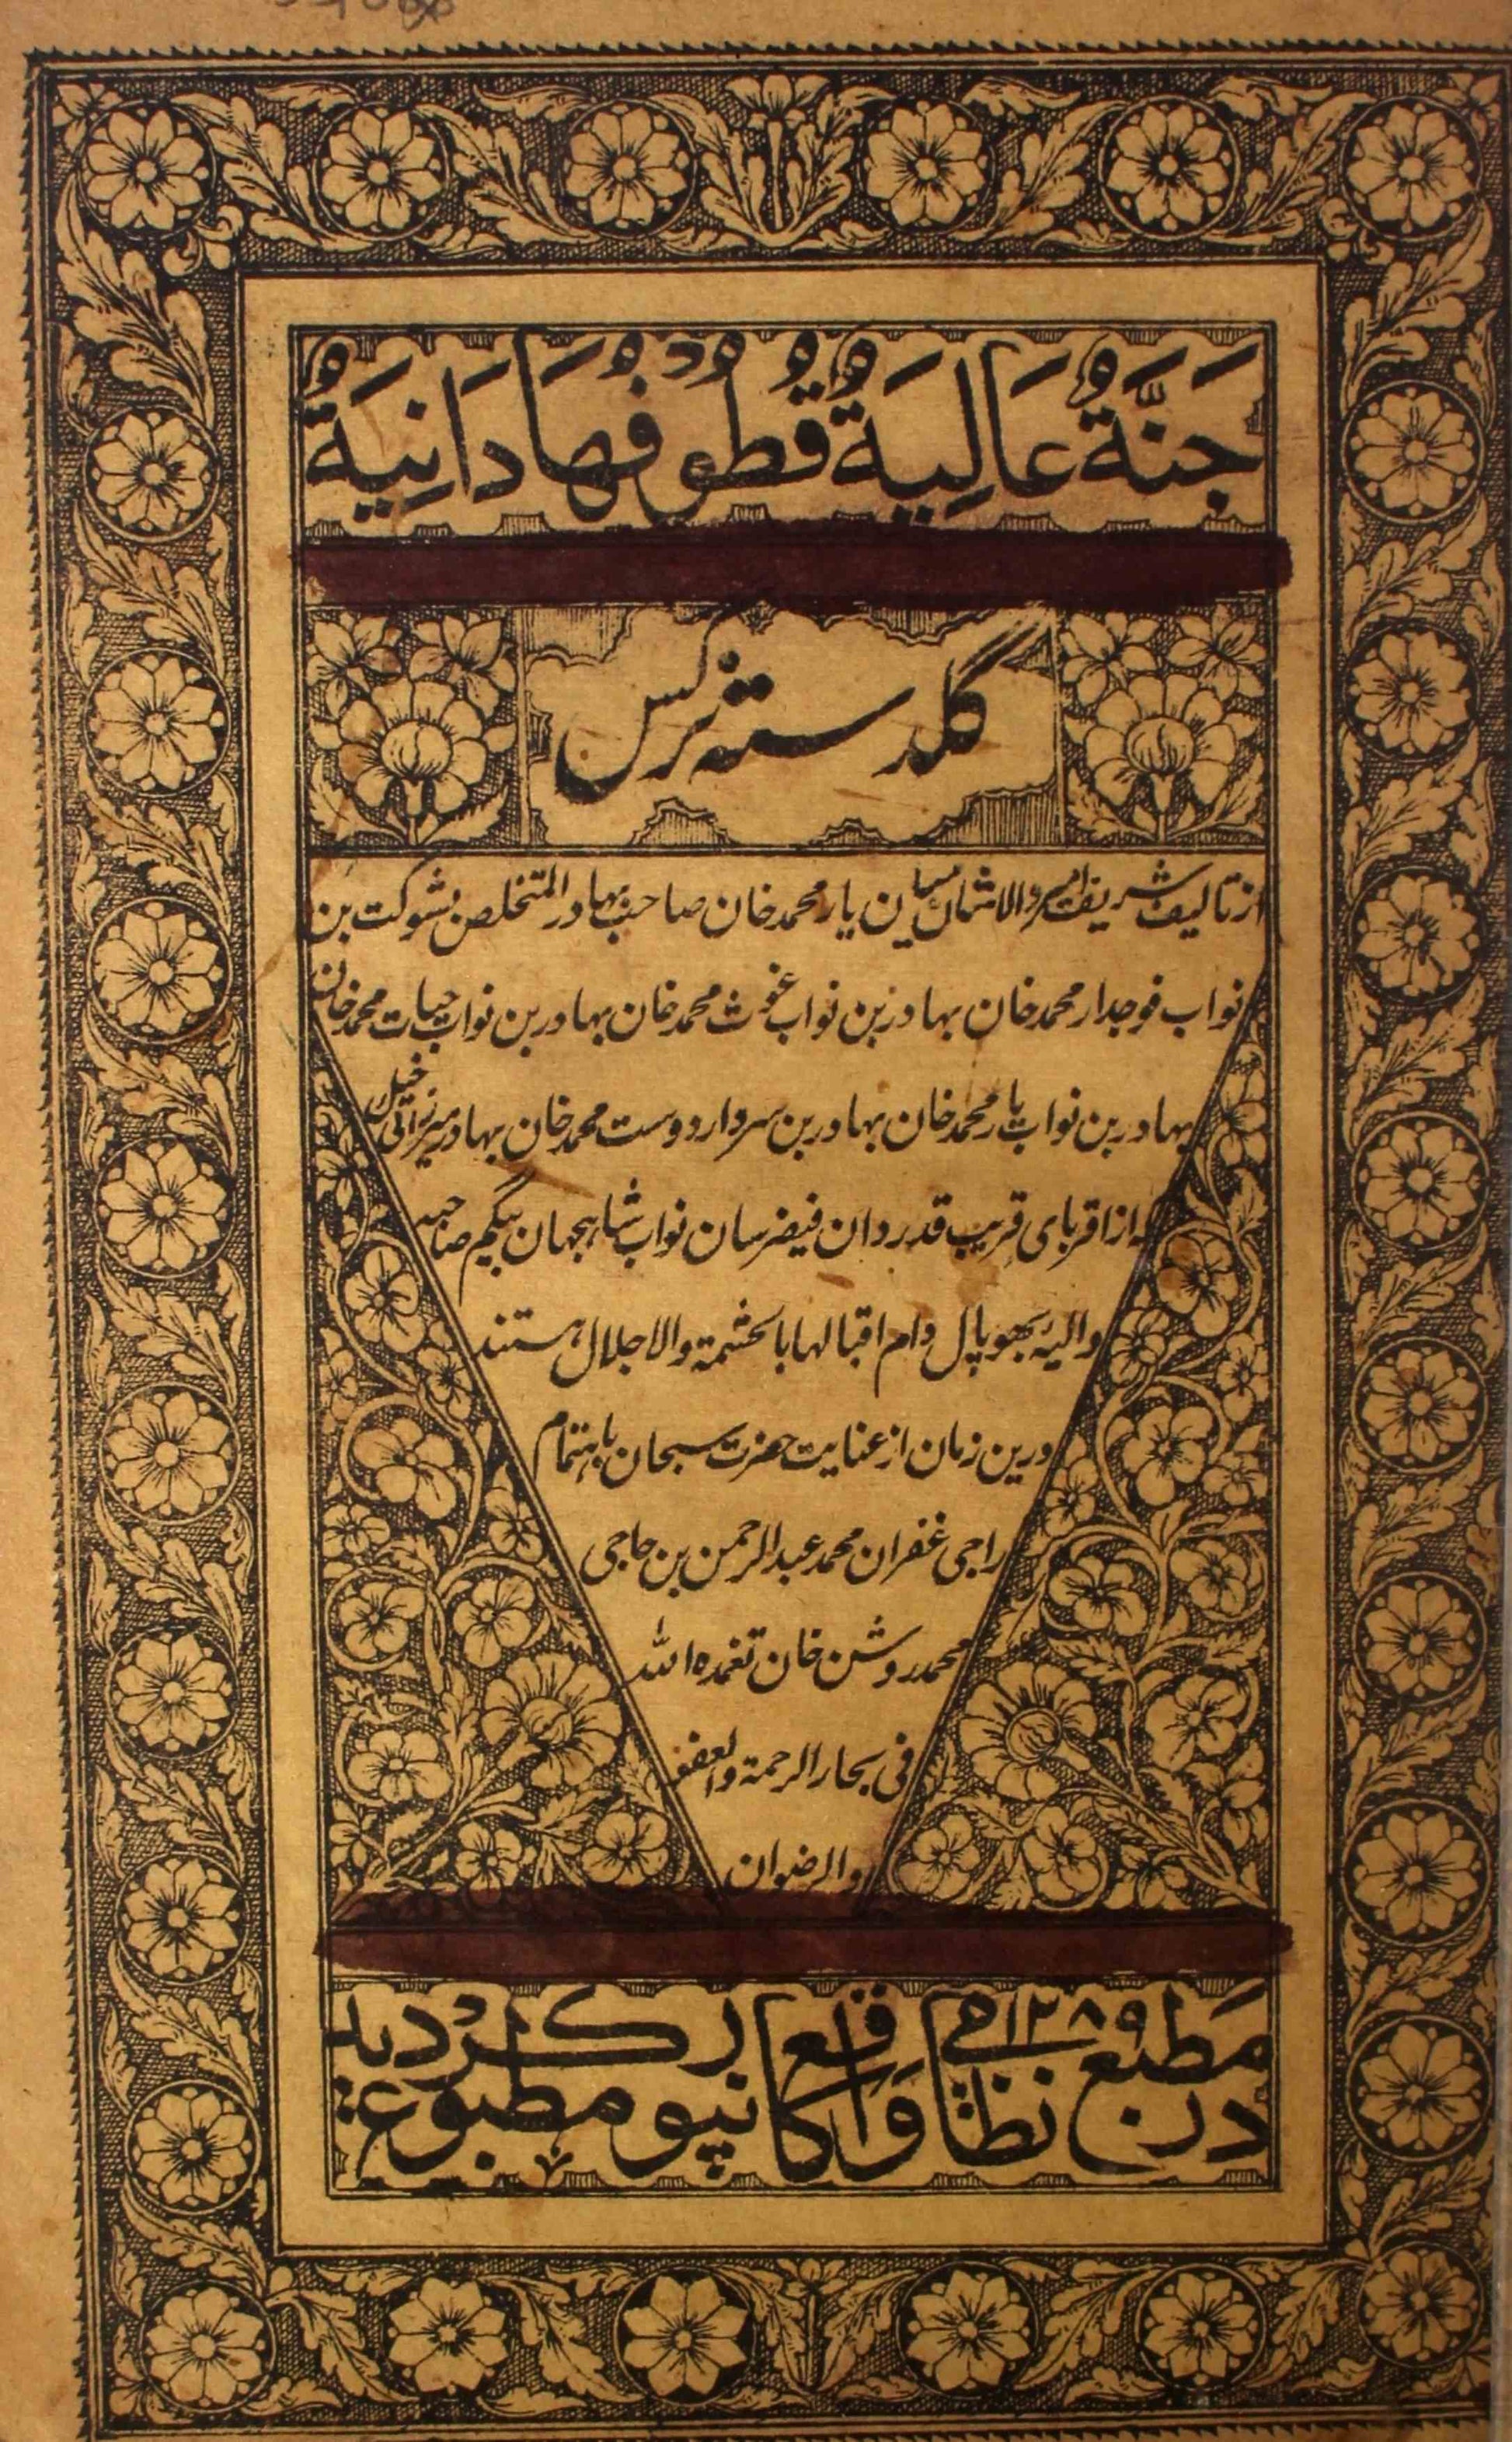 جَنَّةٌ عَالِيَةٌ قُطُوْفُهَا دَانِيَةٌ
گلدسته نرگس
از تالیف شریف امیر والاشان میان یار محمد خان صاحب بهادر المتخلص بشوکت بن
نواب فوجدار محمد خان بهادر بن نواب غوث محمد خان بهادر بن نواب حیات محمد خان
بهادر بن نواب یار محمد خان بهادر بن سردار دوست محمد خان بهادر میرزائی خیل
که از اقربای قریب قدردان فیضرسان نواب شاہجہان بیگم صاحبہ
والیہ بھوپال دام اقبالہا بالحشمة والاجلال ہستند
درین زمان از عنایت حضرت سبحان باہتمام
راجی غفران محمد عبدالرحمن بن حاجی
محمد روشن خان تغمدہ اللہ
فی بحار الرحمة والعفو
والرضوان
در مطبع نظامی ۱۲۸۹ھ واقع کانپور مطبوع گردید